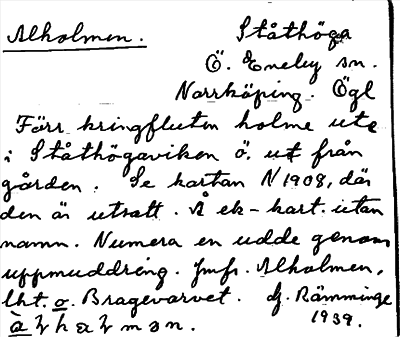 Alholmen. Ståthöga
Ö. Eneby sn.
Norrköping. Ögl
Förr kringfluten holme ute
i Ståthögaviken ö. ut från
gården. Se kartan N 1908, där
den är utsatt. Å ek-kart. utan
namn. Numera en udde genom
uppmuddring. Jmfr. Alholmen,
lht. o. Bragevarvet. dj. Rämminge
1939.